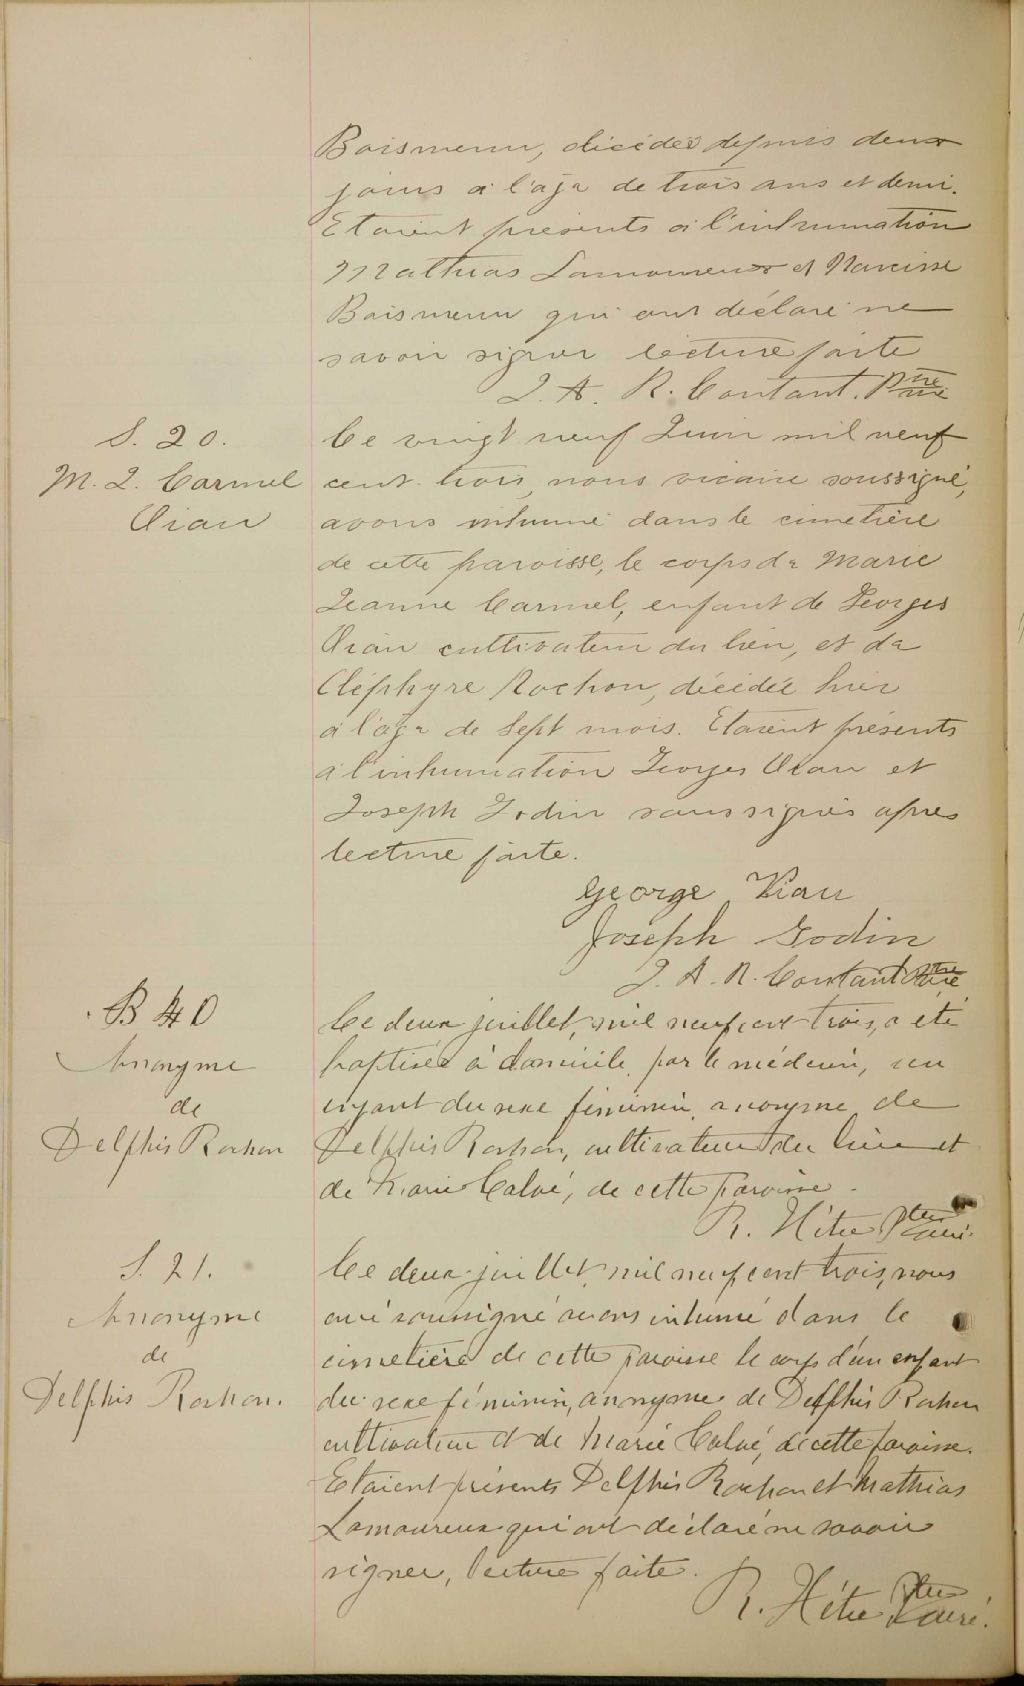 Boismenu, décédée depuis deux
jours à l'âge de trois ans et demi.
Etaient présents à l'inhumation
Mathias Lamoureux et Narcisse
Boismenu qui ont déclaré ne
savoir signer lecture faite
J. A. R. Contant. Ptre
S. 20.
M. J. Carmel
Viau
Ce vingt neuf Juin mil neuf
cent trois, nous vicaire soussigné,
avons inhumé dans le cimetière
de cette paroisse, le corps de Marie
Jeanne Carmel, enfant de Georges
Viau cultivateur du lieu, et de
Cléphyre Rochon, décédée hier
à l'âge de Sept mois. Etaient présents
à l'inhumation Georges Viau et
Joseph Godin soussignés après
lecture faite.
George Viau
Joseph Godin
J. A. R. Contant Ptre
B 40
Anonyme
de
Delphis Rochon
Ce deux juillet, mil neuf cent trois, a été
baptisée à domicile par le médecin, un
enfant du sexe féminin, anonyme de
Delphis Rochon, cultivateur du lieu et
de Marie Calvé, de cette paroisse.
R. Hétu Ptre curé.
S. 21.
Anonyme
de
Delphis Rochon.
Ce deux juillet, mil neuf cent trois, nous
curé soussigné avons inhumé dans le
cimetière de cette paroisse le corps d'un enfant
du sexe féminin, anonyme de Delphis Rochon
cultivateur et de Marie Calvé, de cette paroisse.
Etaient présents Delphis Rochon et Mathias
Lamoureux qui ont déclaré ne savoir
signer, lecture faite.
R. Hétu Ptre curé.